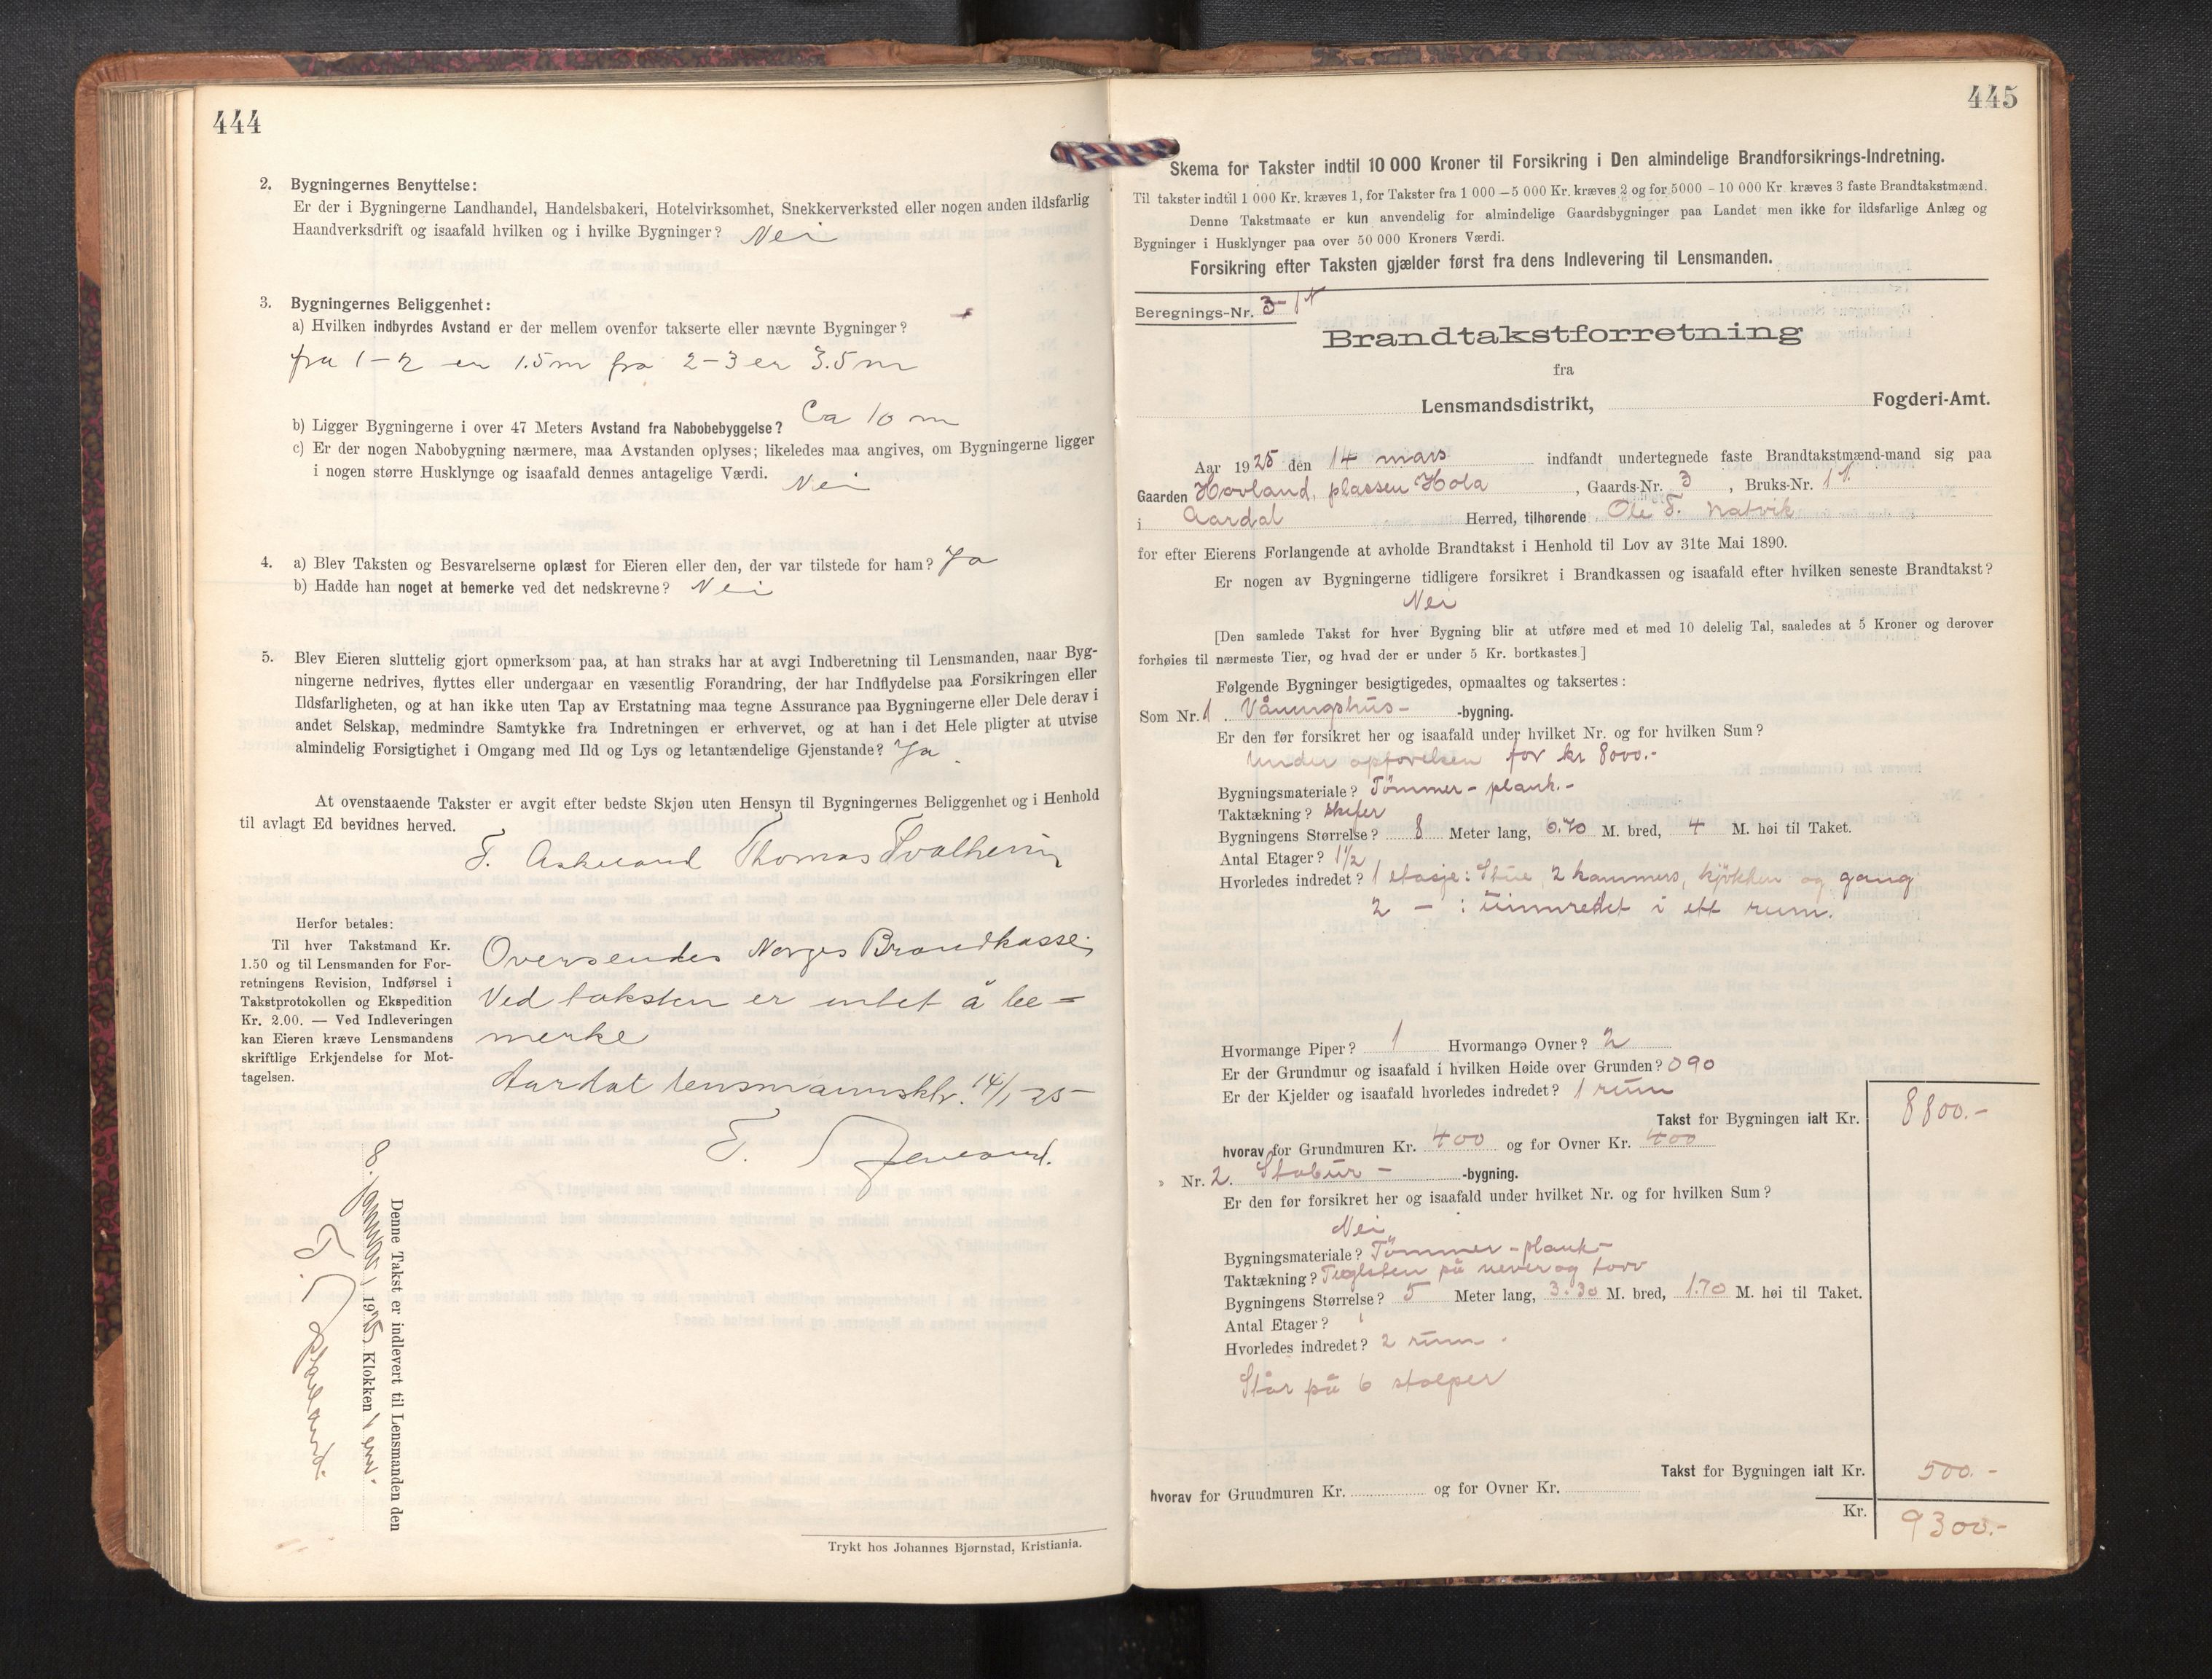 444
2. Bygningernes Benyttelse:
Er der i Bygningerne Landhandel, Handelsbakeri, Hotelvirksomhet, Snekkerverksted eller nogen anden ildsfarlig
Haandverksdrift og isaafald hvilken og i hvilke Bygninger? Nei
3. Bygningernes Beliggenhet:
a) Hvilken indbyrdes Avstand er der mellem ovenfor takserte eller nævnte Bygninger?
fra 1-2 er 1.5 m fra 2-3 er 3.5 m
b) Ligger Bygningerne i over 47 Meters Avstand fra Nabobebyggelse? Ca 10 m
c) Er der nogen Nabobygning nærmere, maa Avstanden oplyses; likeledes maa angives, om Bygningerne ligger
i nogen større Husklynge og isaafald dennes antagelige Værdi. Nei
4. a) Blev Taksten og Besvarelserne oplæst for Eieren eller den, der var tilstede for ham? Ja
b) Hadde han noget at bemerke ved det nedskrevne? Nei
5. Blev Eieren sluttelig gjort opmerksom paa, at han straks har at avgi Indberetning til Lensmanden, naar Byg-
ningerne nedrives, flyttes eller undergaar en væsentlig Forandring, der har Indflydelse paa Forsikringen eller
Ildsfarligheten, og at han ikke uten Tap av Erstatning maa tegne Assurance paa Bygningerne eller Dele derav i
andet Selskap, medmindre Samtykke fra Indretningen er erhvervet, og at han i det Hele pligter at utvise
almindelig Forsigtighet i Omgang med Ild og Lys og letantændelige Gjenstande? Ja.
At ovenstaaende Takster er avgit efter bedste Skjøn uten Hensyn til Bygningernes Beliggenhet og i Henhold
til avlagt Ed bevidnes herved.
T. Thomas Svalheim
Herfor betales:
Til hver Takstmand Kr.
1.50 og til Lensmanden for For-
retningens Revision, Indførsel i
Takstprotokollen og Ekspedition
Kr. 2.00. — Ved Indleveringen
kan Eieren kræve Lensmandens
skriftlige Erkjendelse for Mot-
tagelsen.
Oversendes Norges Brandkasse,
Ved taksten er intet å be-
merke
Aardal lensmannsktr. 14/1-25-
Denne Takst er indlevert til Lensmanden den
8. januar 1925 Klokken 1 em.
Trykt hos Johannes Bjørnstad, Kristiania.
445
Skema for Takster indtil 10 000 Kroner til Forsikring i Den almindelige Brandforsikrings-Indretning.
Til takster indtil 1 000 Kr. kræves 1, for Takster fra 1 000 — 5 000 Kr. kræves 2 og for 5000 - 10 000 Kr. kræves 3 faste Brandtakstmænd.
Denne Takstmaate er kun anvendelig for almindelige Gaardsbygninger paa Landet men ikke for ildsfarlige Anlæg og
Bygninger i Husklynger paa over 50 000 Kroners Værdi.
Forsikring efter Taksten gjælder først fra dens Indlevering til Lensmanden.
Beregnings-Nr. 3-1
Brandtakstforretning
fra
Lensmandsdistrikt, Fogderi-Amt.
Aar 1925 den 14 mars indfandt undertegnede faste Brandtakstmænd-mand sig paa
Gaarden Hovland, plassen Hola, Gaards-Nr. 3, Bruks-Nr. 1
i Aardal Herred, tilhørende Ole T. Natvik
for efter Eierens Forlangende at avholde Brandtakst i Henhold til Lov av 31te Mai 1890.
Er nogen av Bygningerne tidligere forsikret i Brandkassen og isaafald efter hvilken seneste Brandtakst?
Nei
[Den samlede Takst for hver Bygning blir at utføre med et med 10 delelig Tal, saaledes at 5 Kroner og derover
forhøies til nærmeste Tier, og hvad der er under 5 Kr. bortkastes.]
Følgende Bygninger besigtigedes, opmaaltes og taksertes:
Som Nr. 1. Våningshus- -bygning.
Er den før forsikret her og isaafald under hvilket Nr. og for hvilken Sum?
Under opførelsen for kr 8000.-
Bygningsmateriale? Tømmer-plank.-
Taktækning? Skifer
Bygningens Størrelse? 8 Meter lang, 6.70 M. bred, 4 M. høi til Taket.
Antal Etager? 1½
Hvorledes indredet? 1 etasje: Stue, 2 kammers, kjøkken og gang
2 - : Uinnredet i ett rum.
Hvormange Piper? 1 Hvormange Ovner? 2
Er der Grundmur og isaafald i hvilken Høide over Grunden? 090
Er der Kjelder og isaafald hvorledes indredet? 1 rum
Takst for Bygningen ialt Kr. 8800.-
hvorav for Grundmuren Kr. 400 og for Ovner Kr. 400
Nr. 2. Stabur- -bygning.
Er den før forsikret her og isaafald under hvilket Nr. og for hvilken Sum?
Nei
Bygningsmateriale? Tømmer-plank-
Taktækning? Teglsten på never og torv
Bygningens Størrelse? 5 Meter lang, 3.30 M. bred, 1.70 M. høi til Taket.
Antal Etager? 1
Hvorledes indredet? 2 rum.
Står på 6 stolper
Takst for Bygningen ialt Kr. 500.-
hvorav for Grundmuren Kr. og for Ovner Kr.
Kr. 9300.-